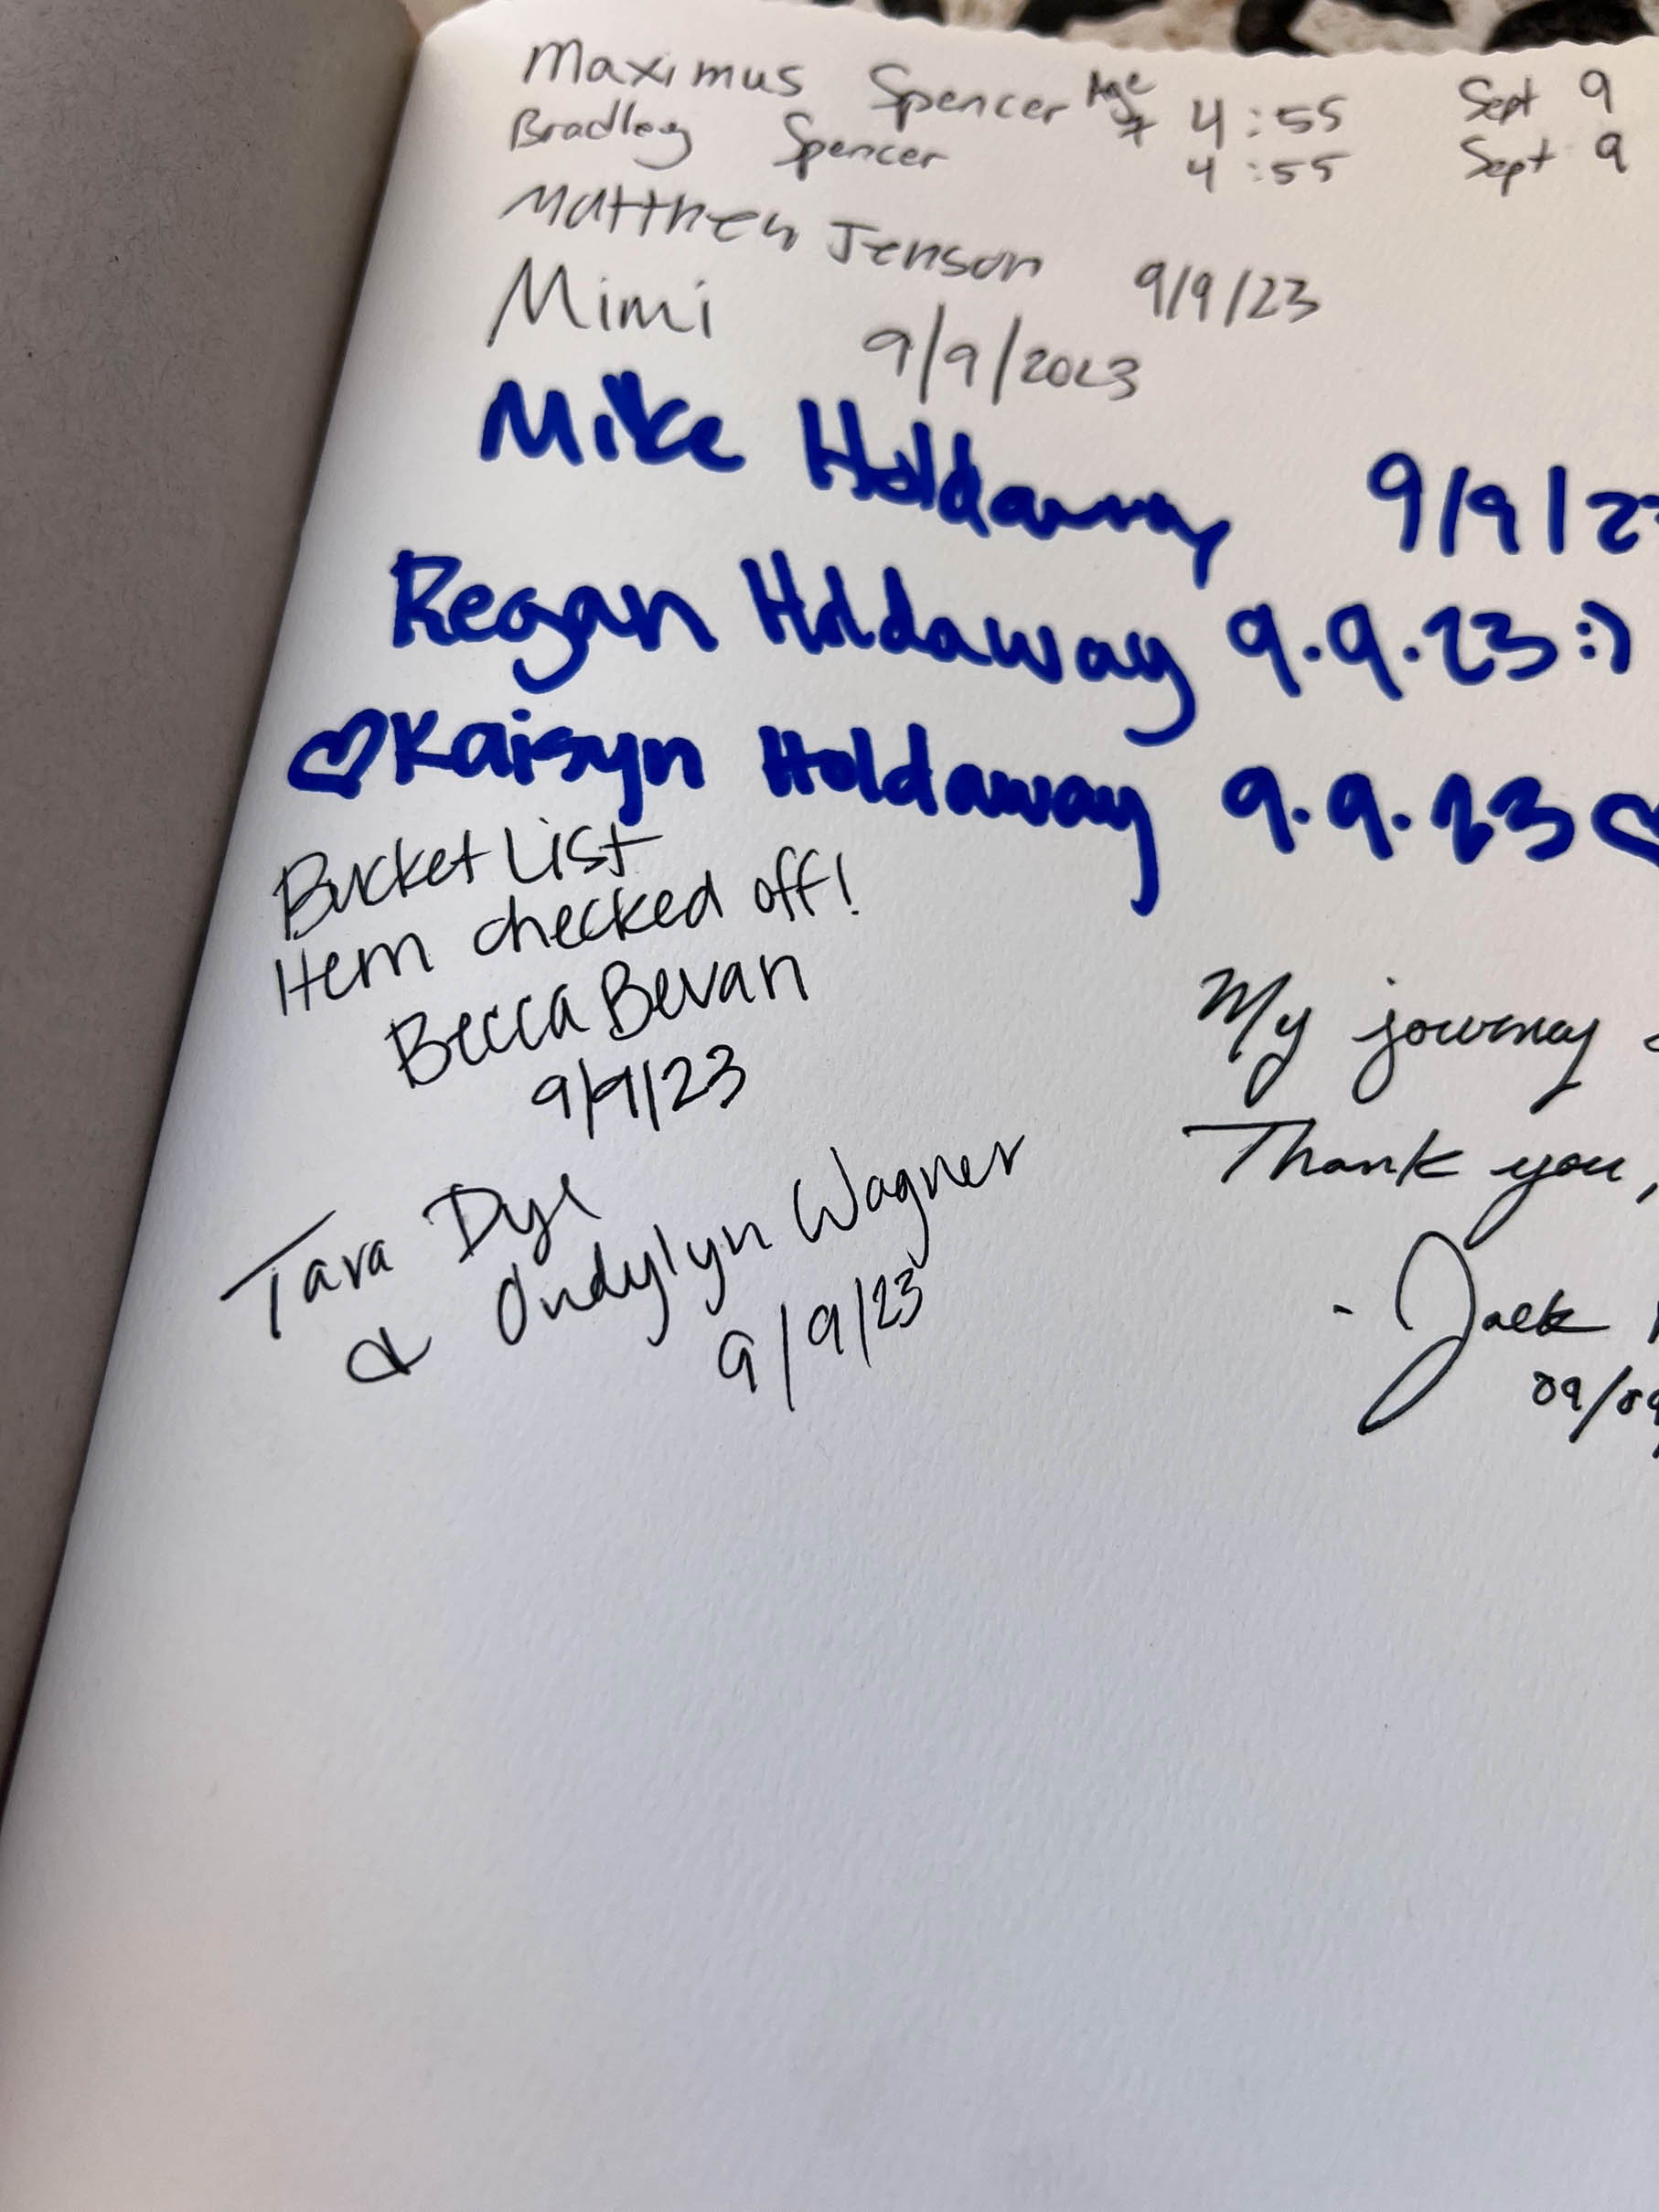 Maximus Spencer Age 7 4:55 Sept 9
Bradley Spencer 4:55 Sept 9
Matthew Jenson 9/9/23
Mimi 9/9/2023
Mike Holdaway 9/9/23
Regan Holdaway 9.9.23 :)
♡Kaisyn Holdaway 9.9.23♡
Bucket List
Item checked off!
Becca Bevan
9/9/23
Tara Dye
& Undylyn Wagner
9/9/23
My journey
Thank you,
- Jack
09/09